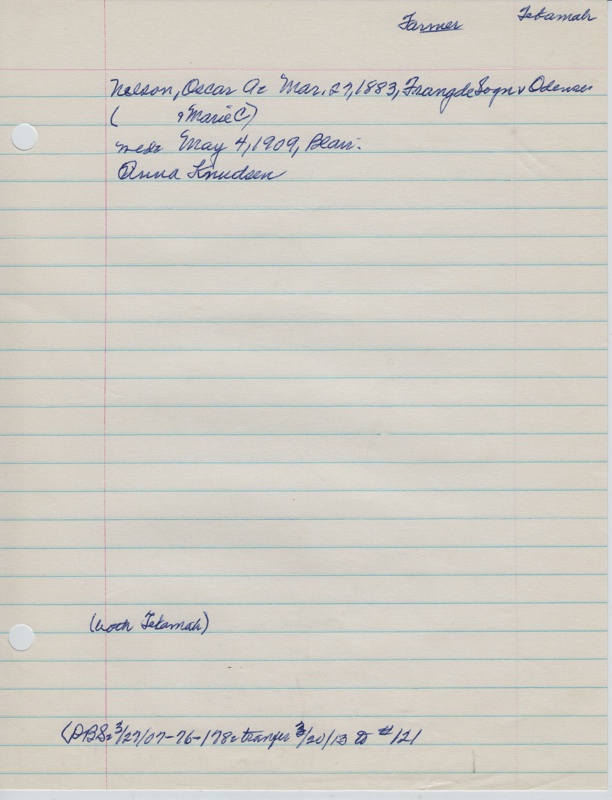 Farmer Tekamah
Nelson, Oscar A= Mar. 27, 1883, Frangde Sogn v Odense
( & Marie C)
med= May 4, 1909, Blair.
Anna Knudsen
(both Tekamah)
(DBS= 3/27/07-76-178= transfer 3/20/13 to #121